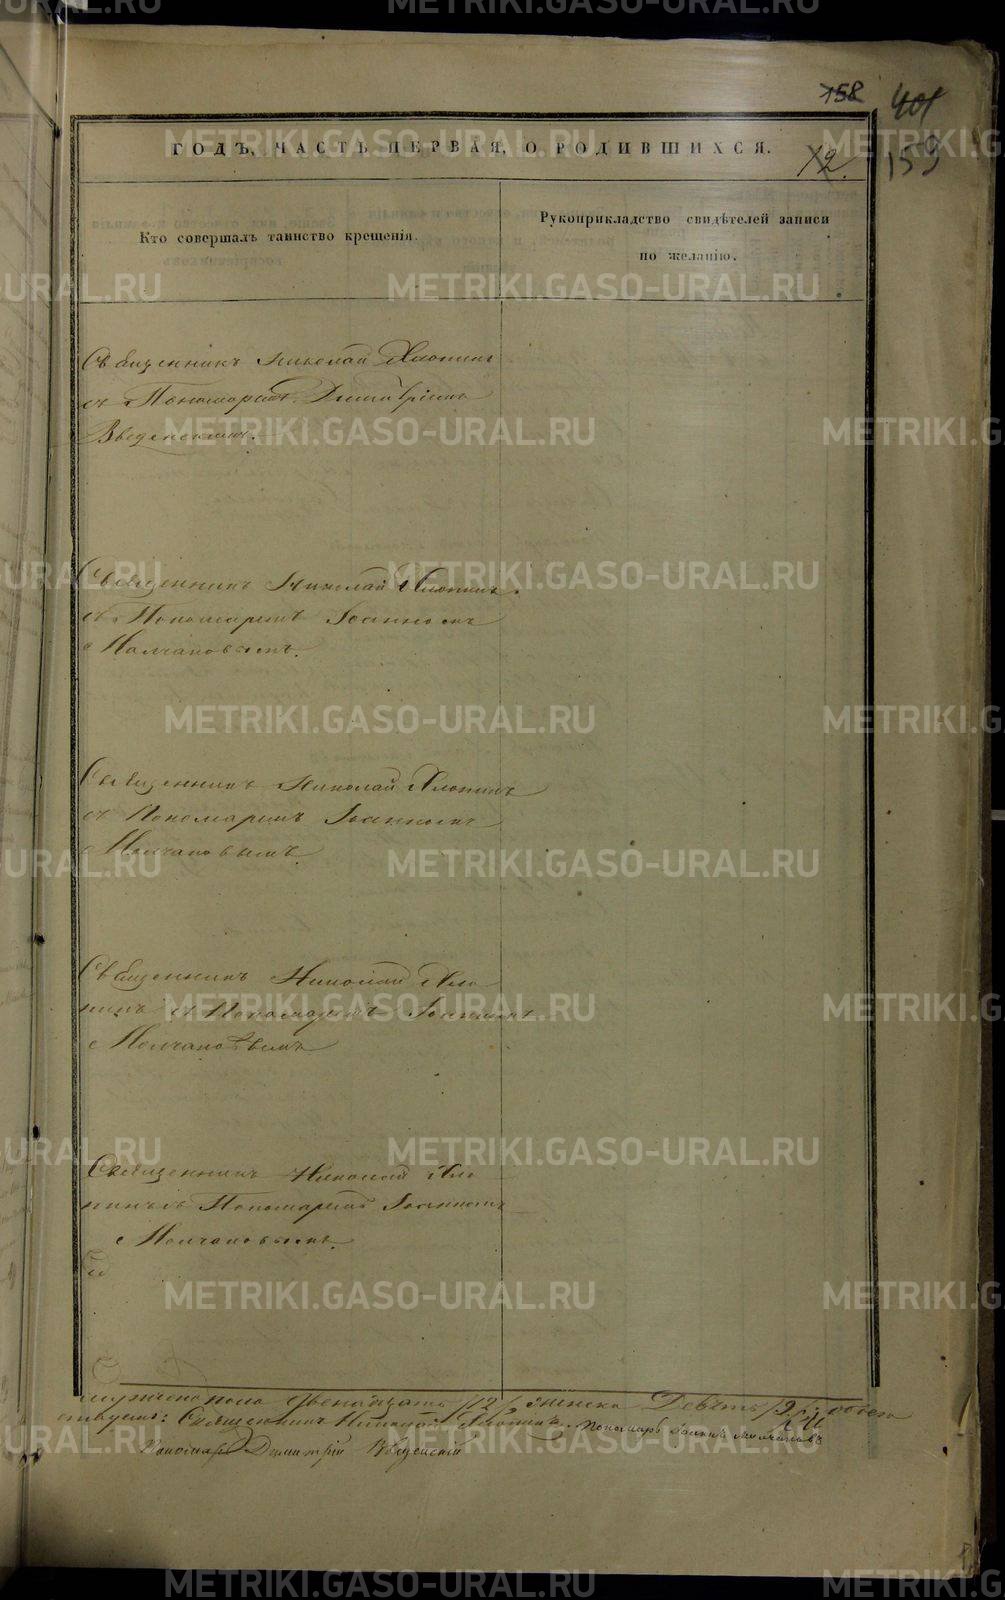 158
401
ГОДЪ, ЧАСТЬ ПЕРВАЯ, О РОДИВШИХСЯ.
12.
159
Кто совершалъ таинство крещенія.
Рукоприкладство свидѣтелей записи
по желанію.
Священникъ Николай Хлопинъ
съ Пономаремъ Димитріемъ
Введенскимъ.
Священникъ Николай Хлопинъ
съ Пономаремъ Іоанномъ
Молчановымъ.
Священникъ Николай Хлопинъ
съ Пономаремъ Іоанномъ
Молчановымъ
Священникъ Николай Хло
пинъ съ Пономаремъ Іоанномъ
Молчановымъ
Священникъ Николай Хло
пинъ съ Пономаремъ Іоанномъ
Молчановымъ.
мужеска пола двенадцать /12/ женска Девять /9/ обоего
Священникъ Николай Хлопинъ Пономарь Іоаннъ Молчановъ
Пономарь Димитрій Введенскій
METRIKI.GASO-URAL.RU